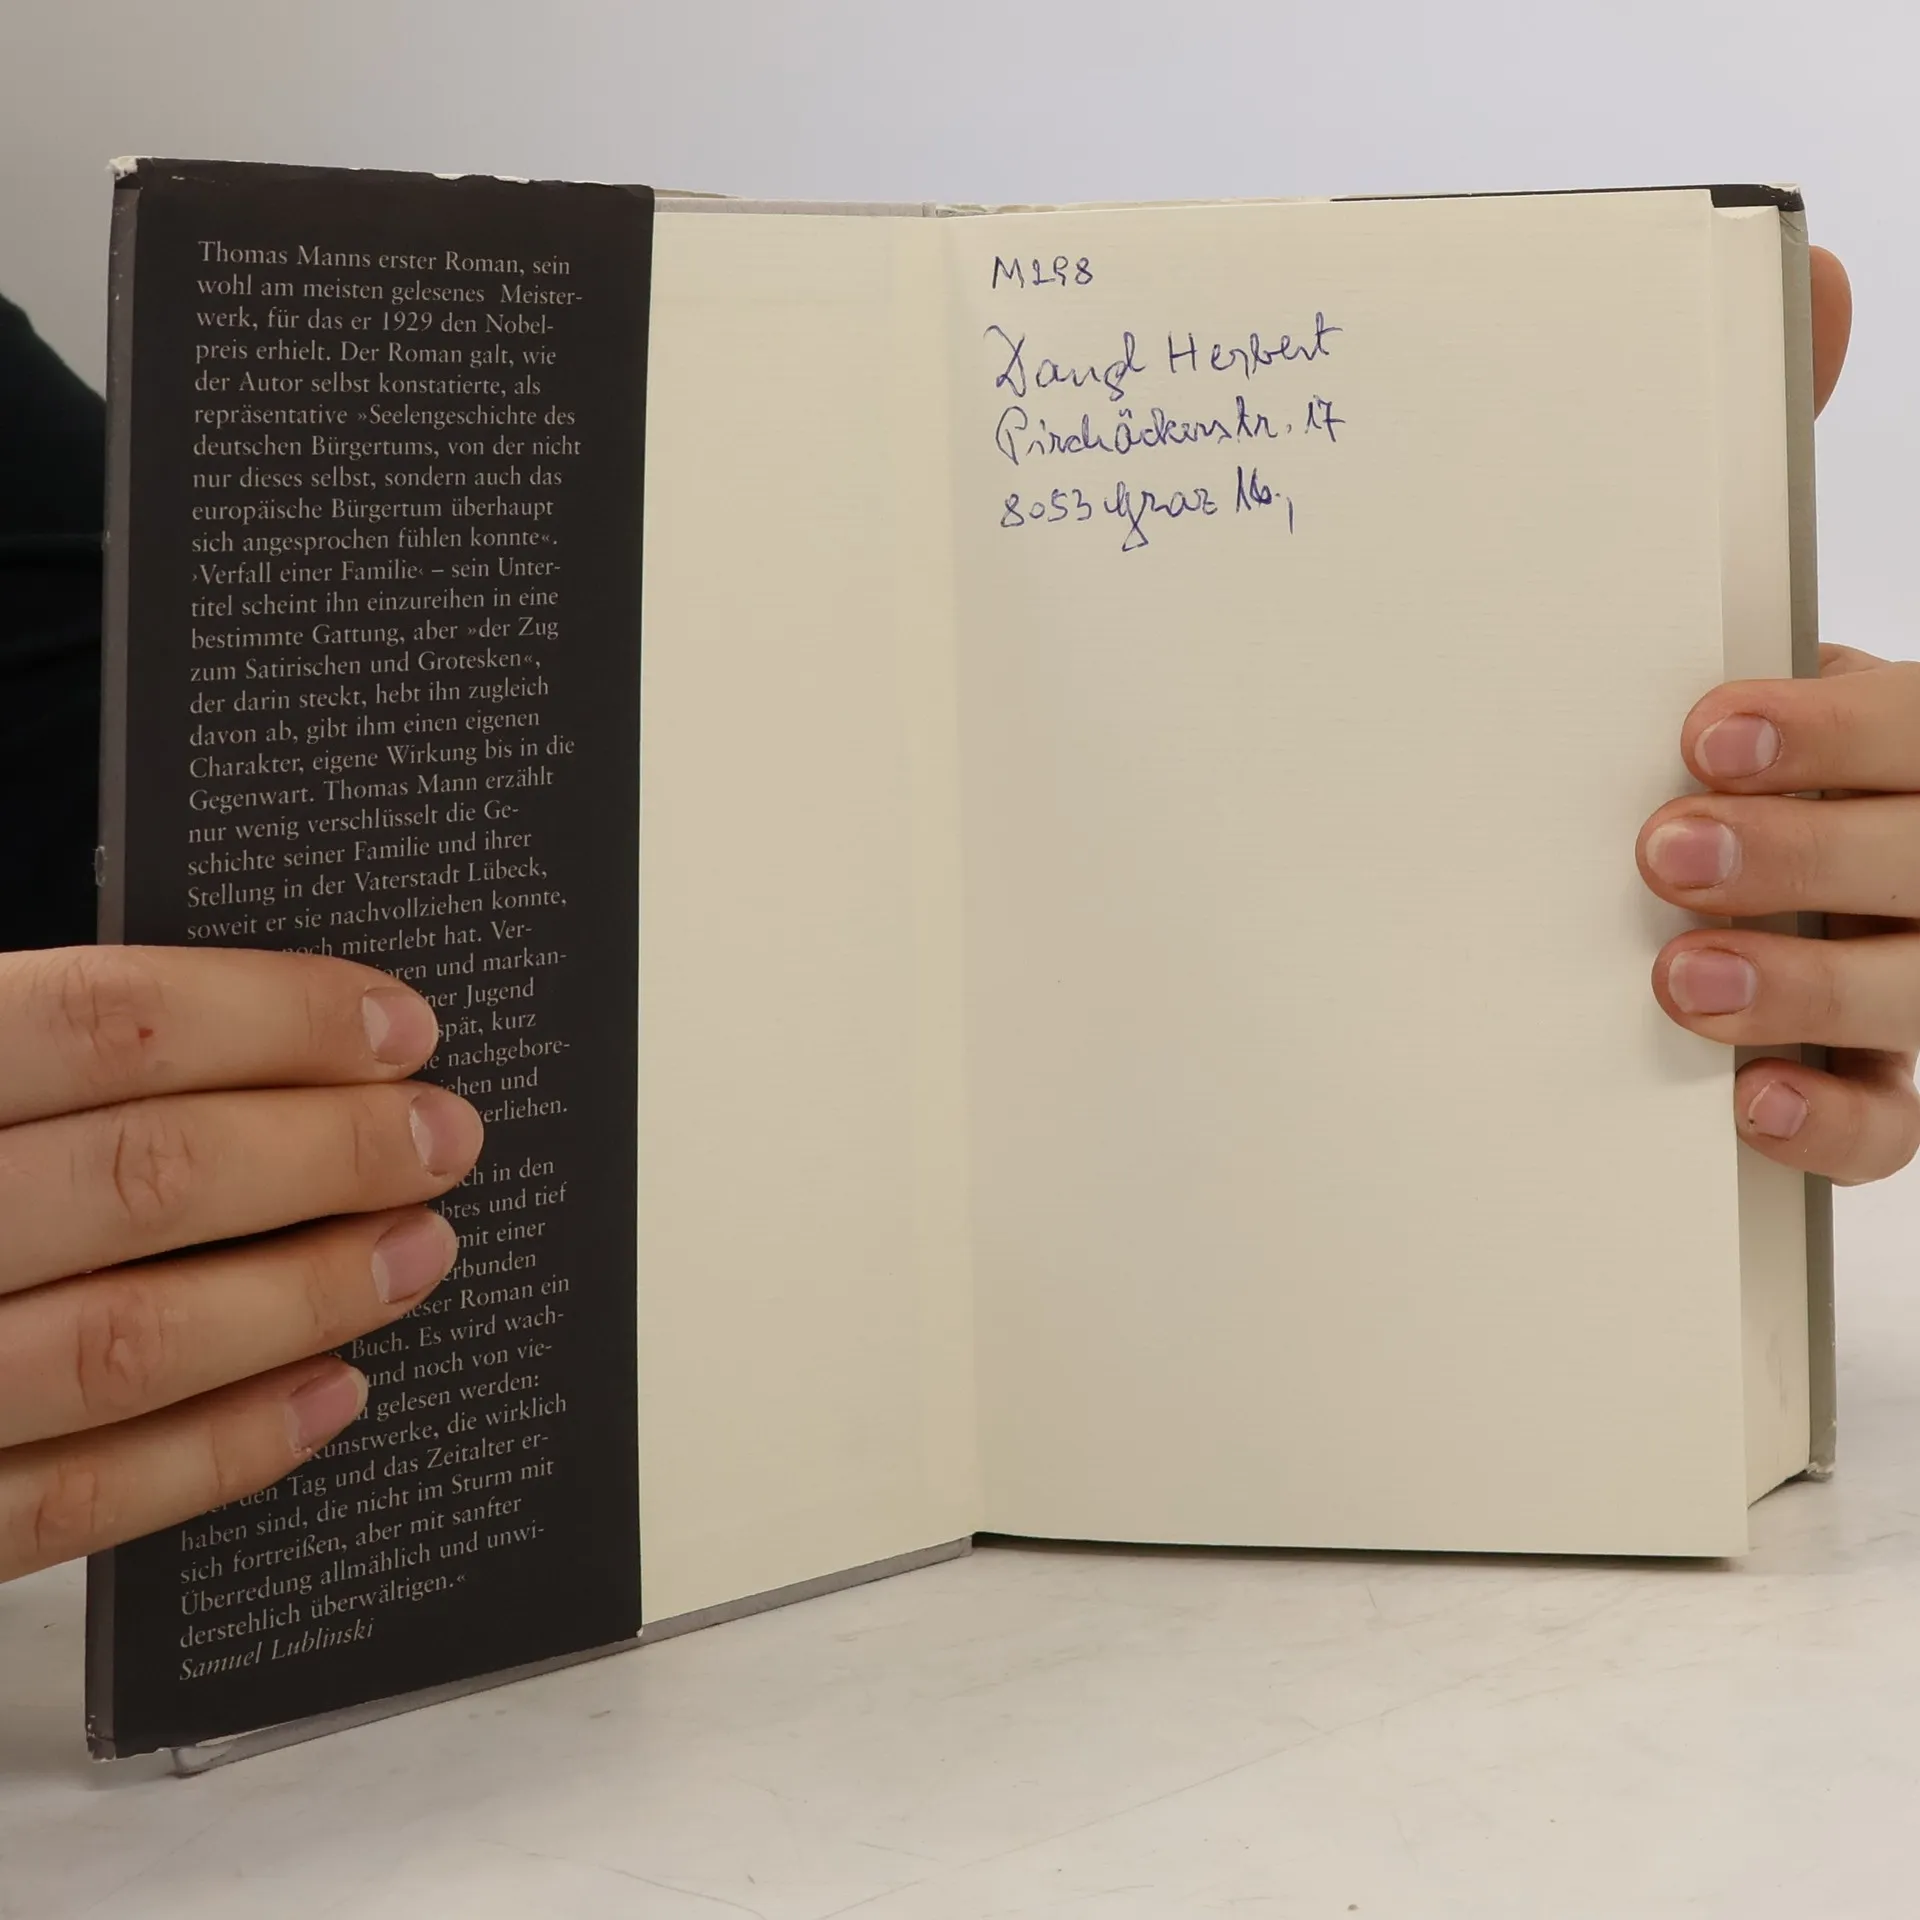 Thomas Manns erster Roman, sein
wohl am meisten gelesenes Meister-
werk, für das er 1929 den Nobel-
preis erhielt. Der Roman galt, wie
der Autor selbst konstatierte, als
repräsentative »Seelengeschichte des
deutschen Bürgertums, von der nicht
nur dieses selbst, sondern auch das
europäische Bürgertum überhaupt
sich angesprochen fühlen konnte«.
›Verfall einer Familie‹ – sein Unter-
titel scheint ihn einzureihen in eine
bestimmte Gattung, aber »der Zug
zum Satirischen und Grotesken«,
der darin steckt, hebt ihn zugleich
davon ab, gibt ihm einen eigenen
Charakter, eigene Wirkung bis in die
Gegenwart. Thomas Mann erzählt
nur wenig verschlüsselt die Ge-
schichte seiner Familie und ihrer
Stellung in der Vaterstadt Lübeck,
soweit er sie nachvollziehen konnte,
noch miterlebt hat. Ver-
und markan-
Jugend
spät, kurz
nachgebore-
und
verliehen.
in den
und tief
mit einer
Roman ein
Buch. Es wird wach-
und noch von vie-
gelesen werden:
Kunstwerke, die wirklich
den Tag und das Zeitalter er-
haben sind, die nicht im Sturm mit
sich fortreißen, aber mit sanfter
Überredung allmählich und unwi-
derstehlich überwältigen.«
Samuel Lublinski
M298
Dangl Herbert
Pirchäckerstr. 17
8053 Graz